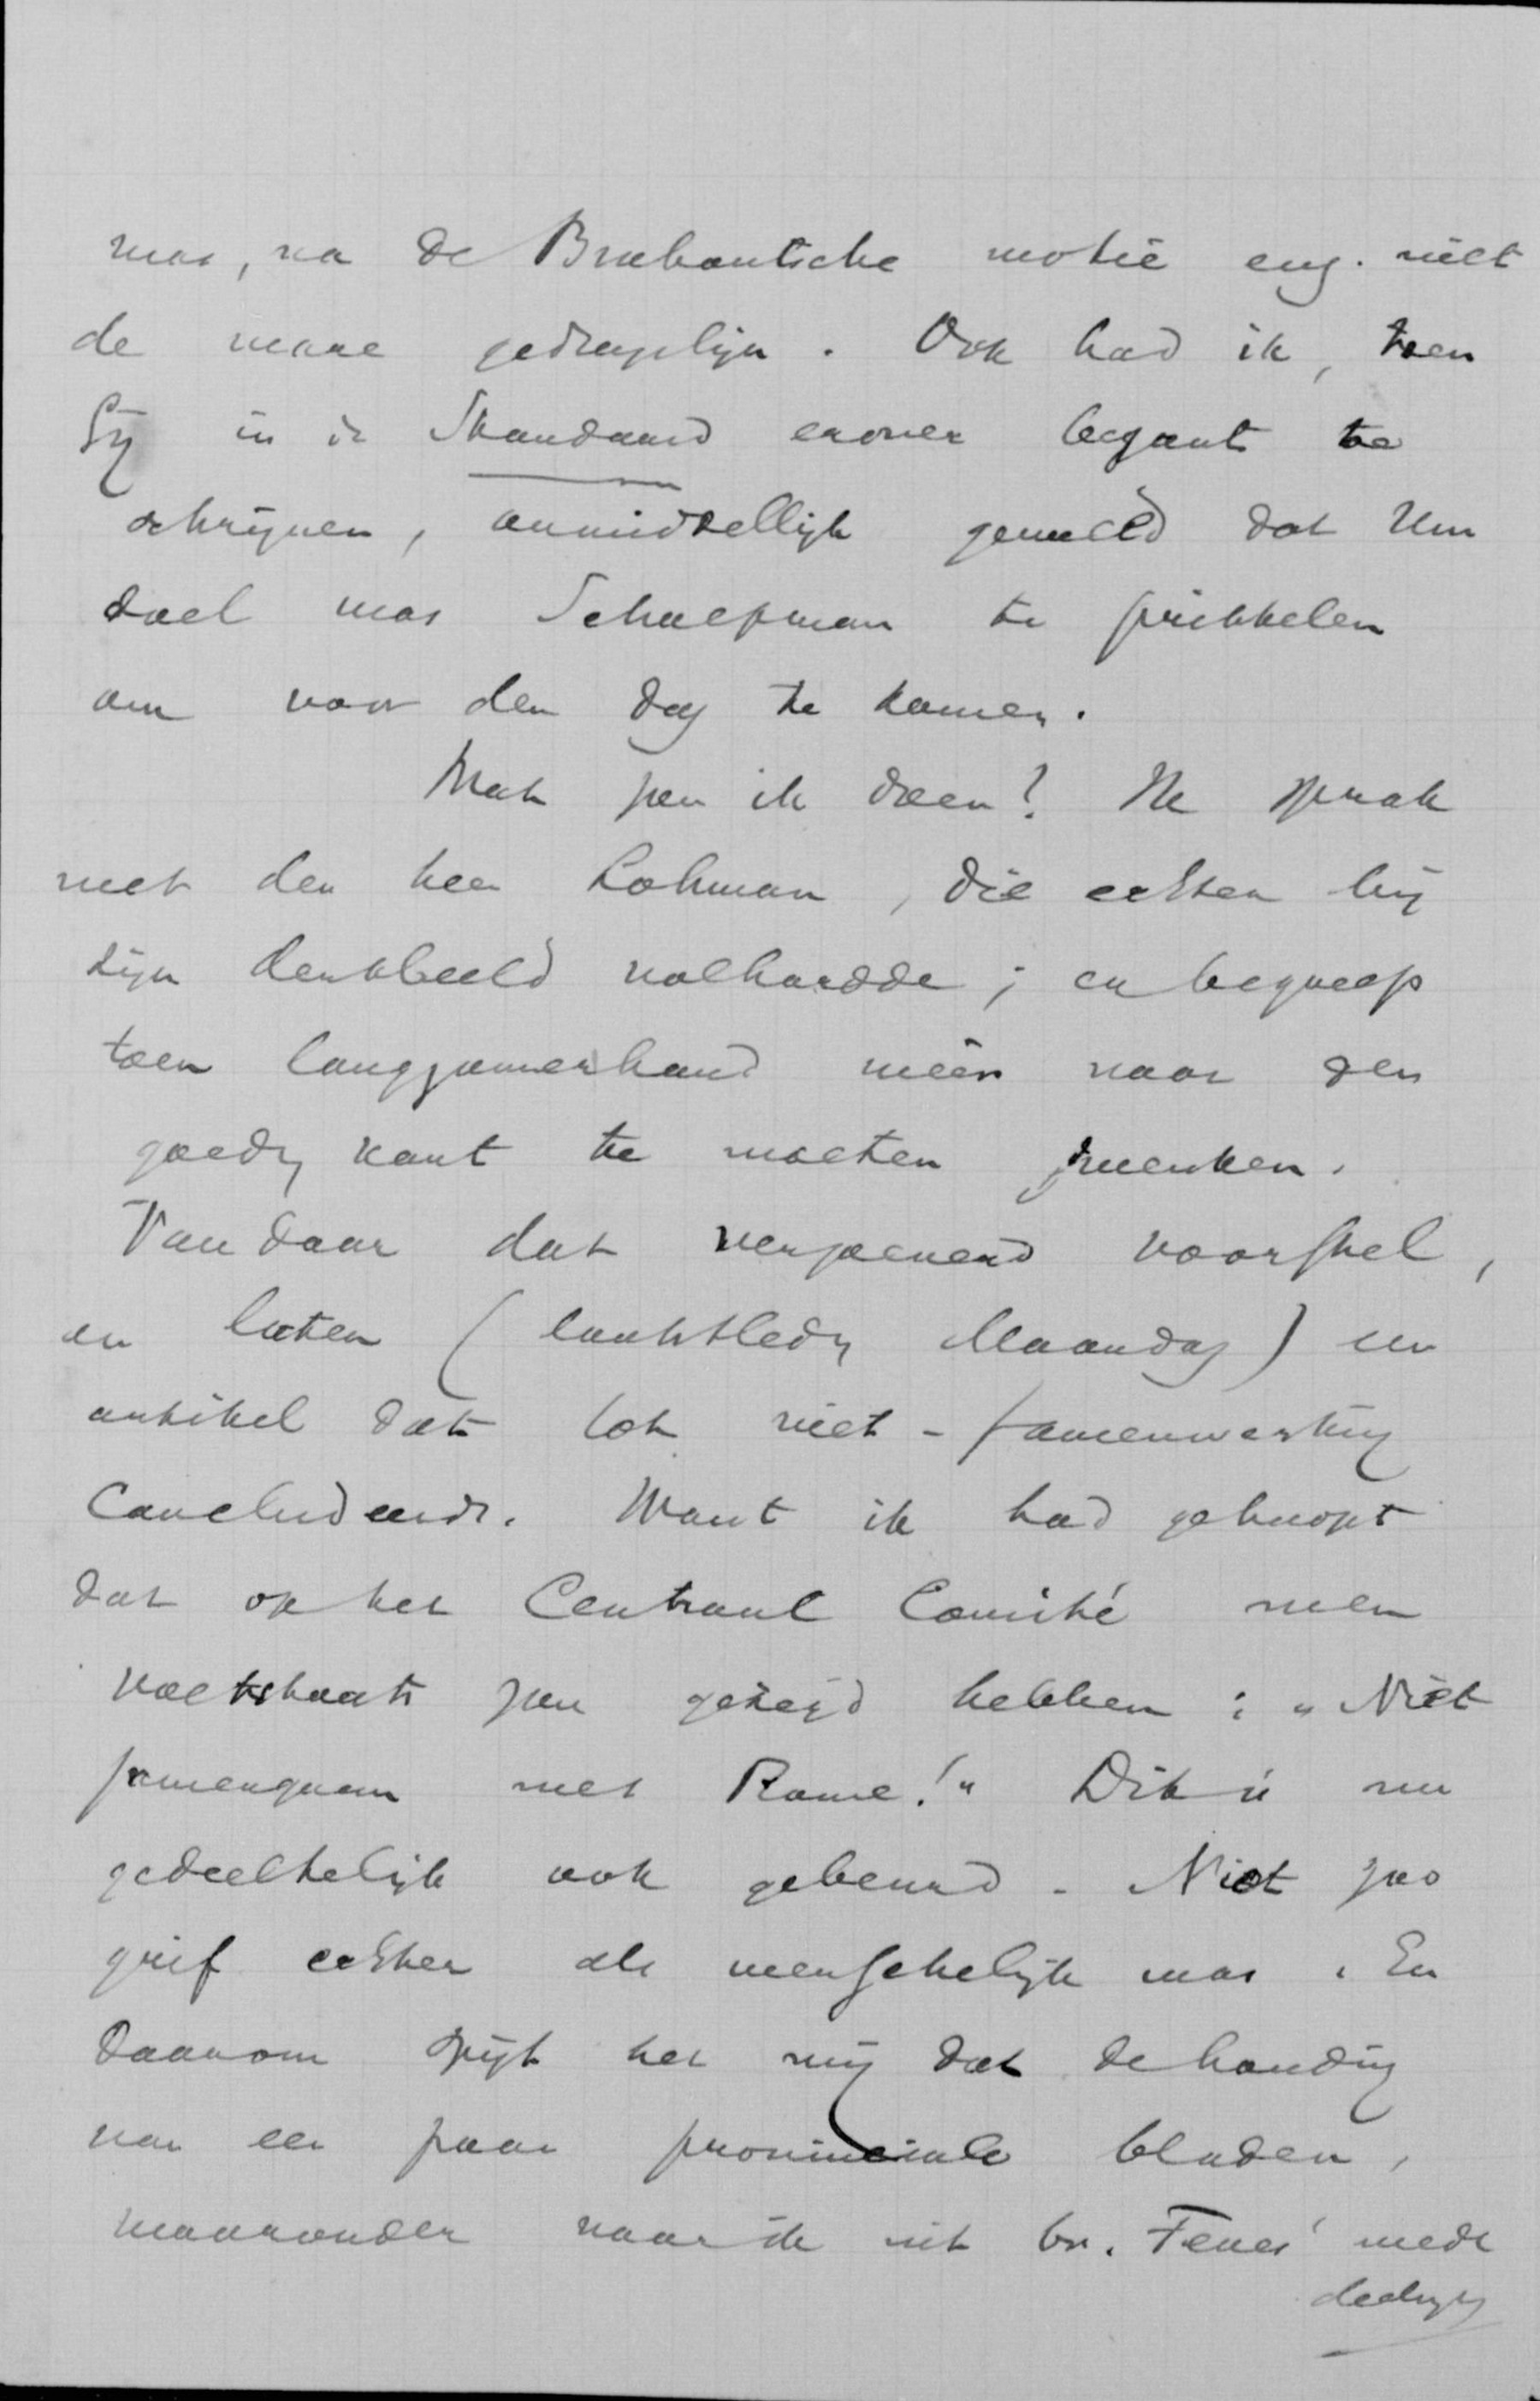 was, na de Brabantsche motie enz. niet
de ware gedragslijn. Ook had ik, toen
Gij in de Standaard erover begont te
schrijven, onmiddellijk gemeend dat Uw
doel was Schaepman te prikkelen
om voor den dag te komen.
Wat zou ik doen? Ik sprak
met den heer Lohman, die echter bij
zijn denkbeeld volhardde; en begreep
toen langzamerhand méér naar den
goeden kant te moeten zwenken.
Van daar dat verzoenend voorstel,
en later (laatstleden Maandag) een
artikel dat tot niet-samenwerking
concludeerde. Want ik had gehoopt
dat op het Centraal Comité men
voetstoots zou gezegd hebben: "Niet
samengaan met Rome!" Dit is nu
gedeeltelijk ook gebeurd. Niet zoo
grif echter als wenschelijk was. En
daarom spijt het mij dat de houding
van een paar provinciale bladen,
waaronder naar ik uit br. mede